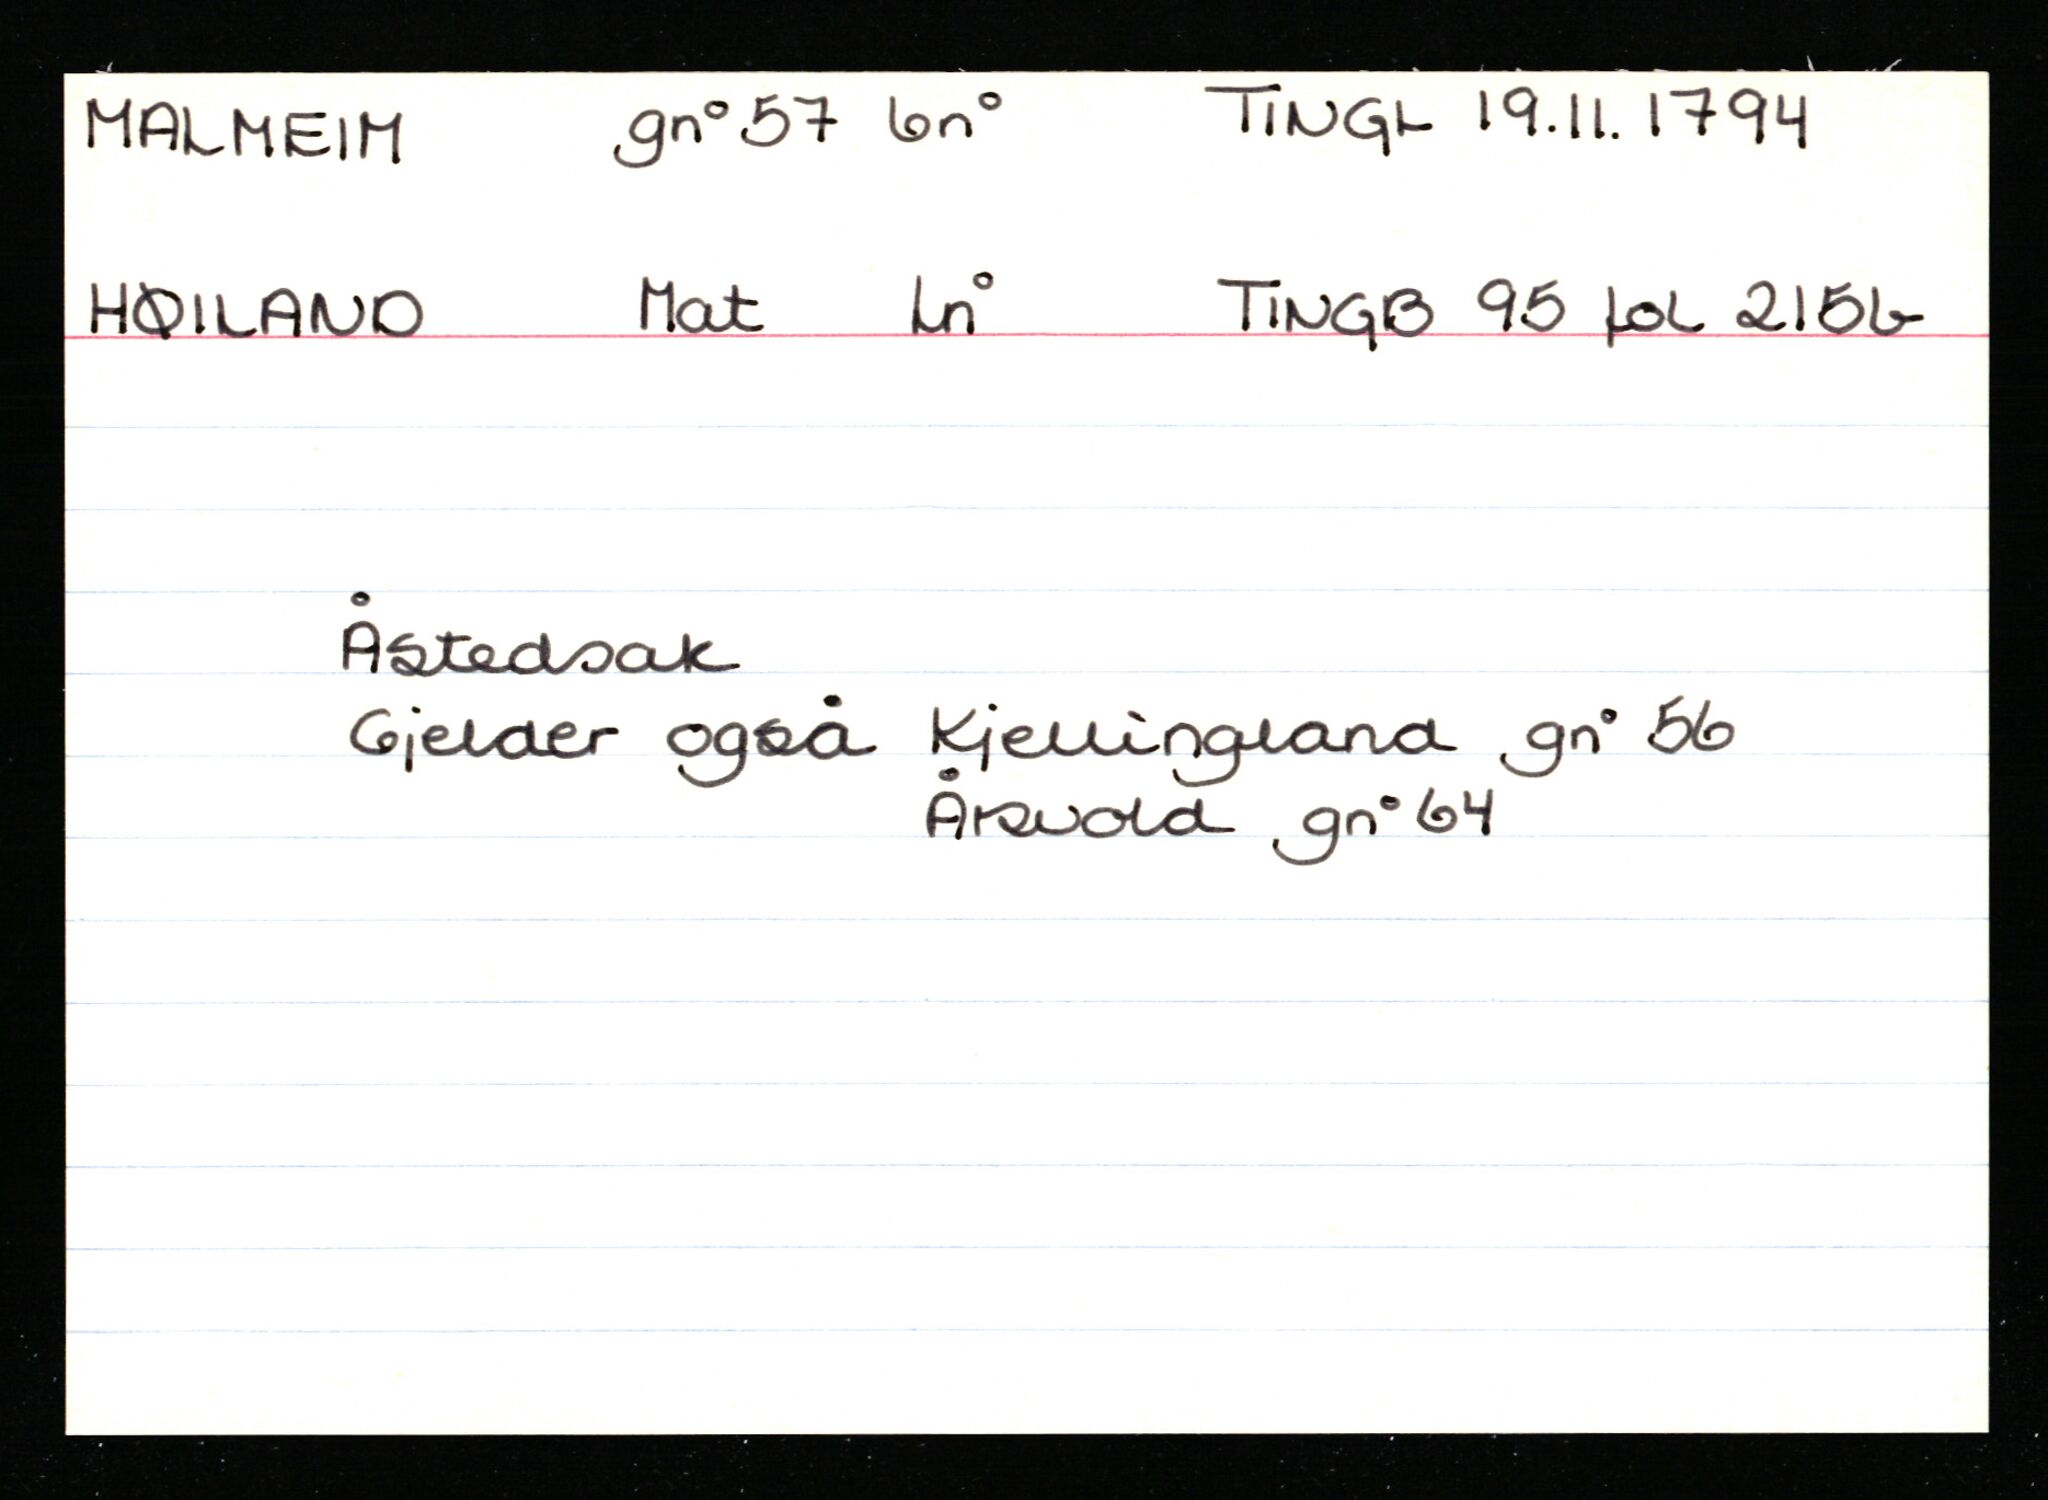 MALMEIM gn° 57 bn° TINGL 19.11.1794
HØILAND Mat Ln° TINGB 95 fol 215b
Åstedsak
Gjelder også Kjellingland gn° 56
Årsvold gn° 64